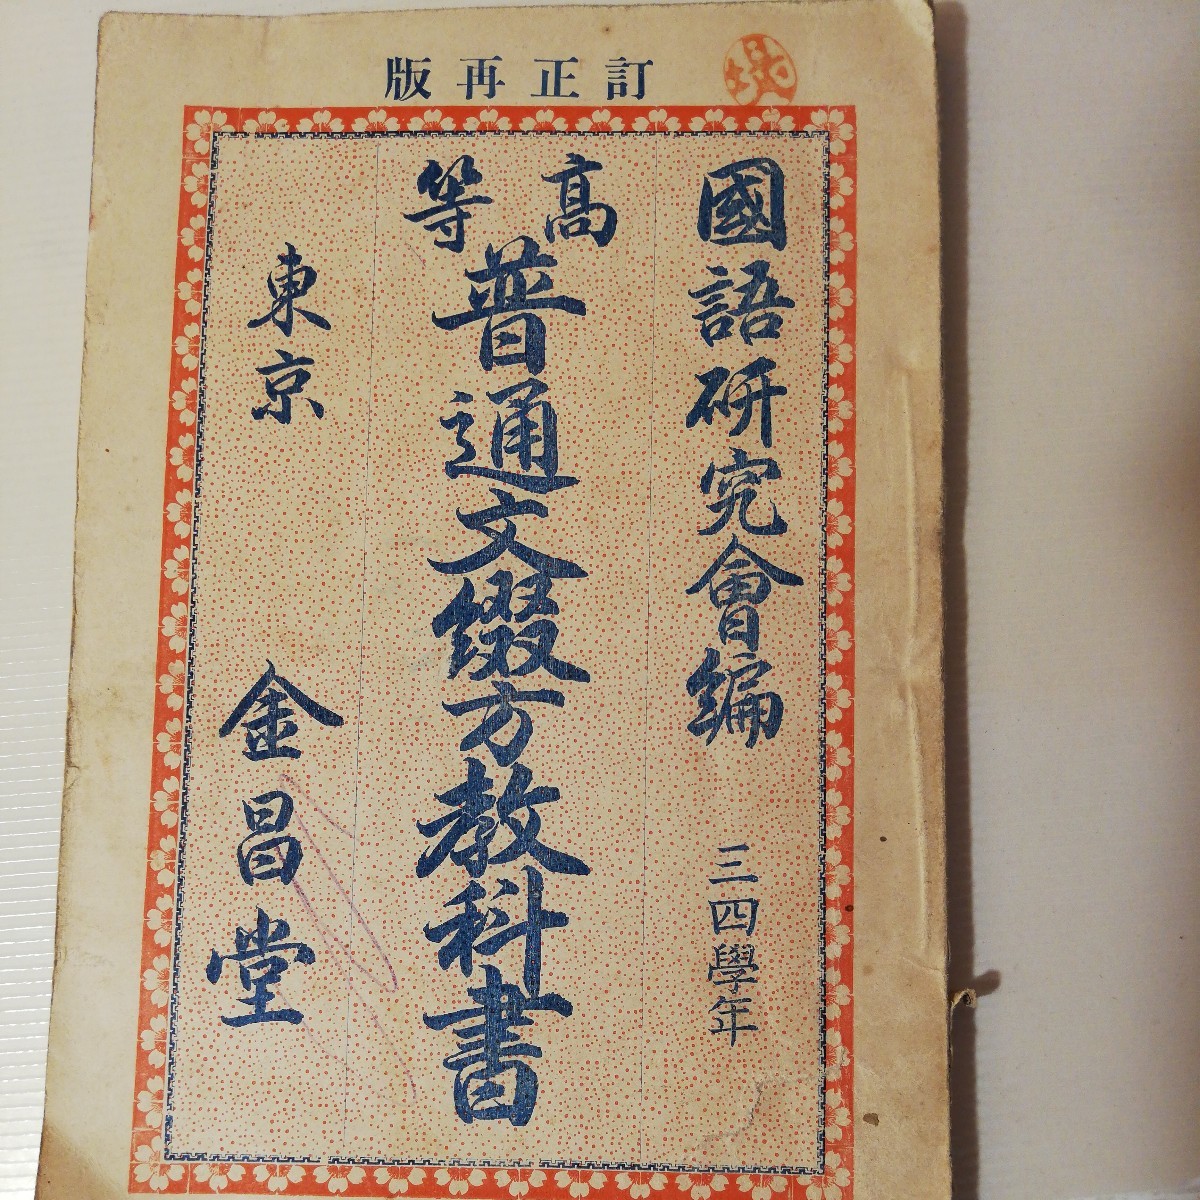 訂正再版
國語研究會編 三四學年
高等普通文綴方教科書
東京 金昌堂